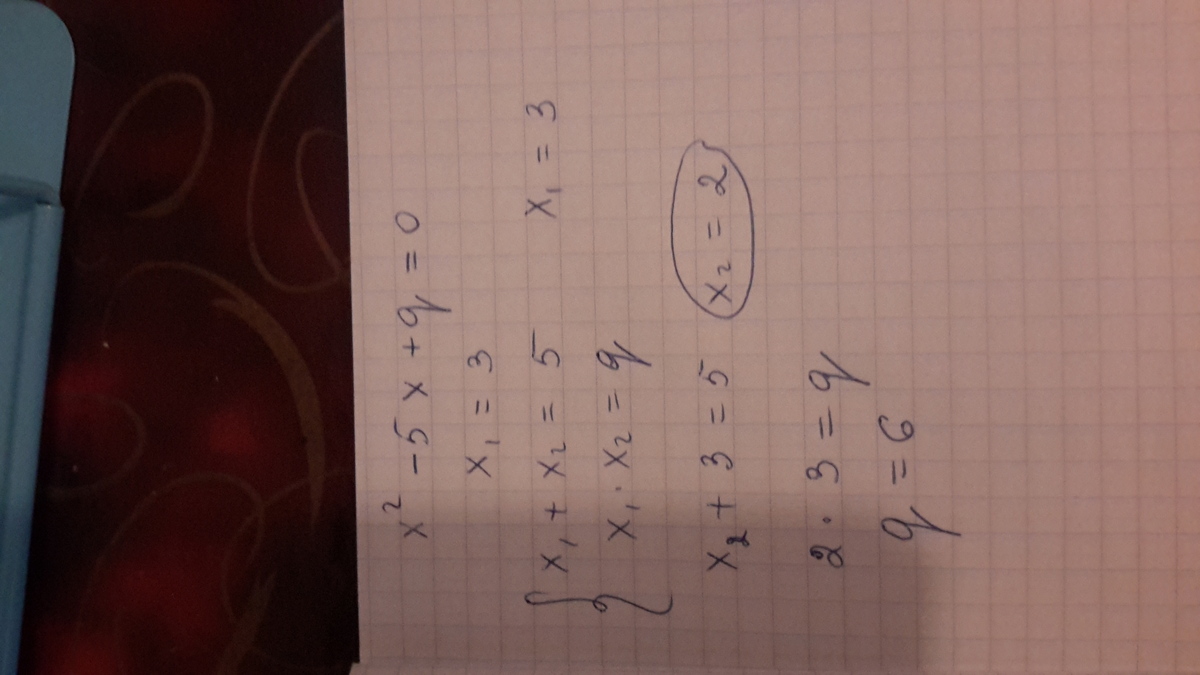 x² - 5x + q = 0
x₁ = 3
{ x₁ + x₂ = 5    x₁ = 3
x₁ · x₂ = q
x₂ + 3 = 5    x₂ = 2
2 · 3 = q
q = 6